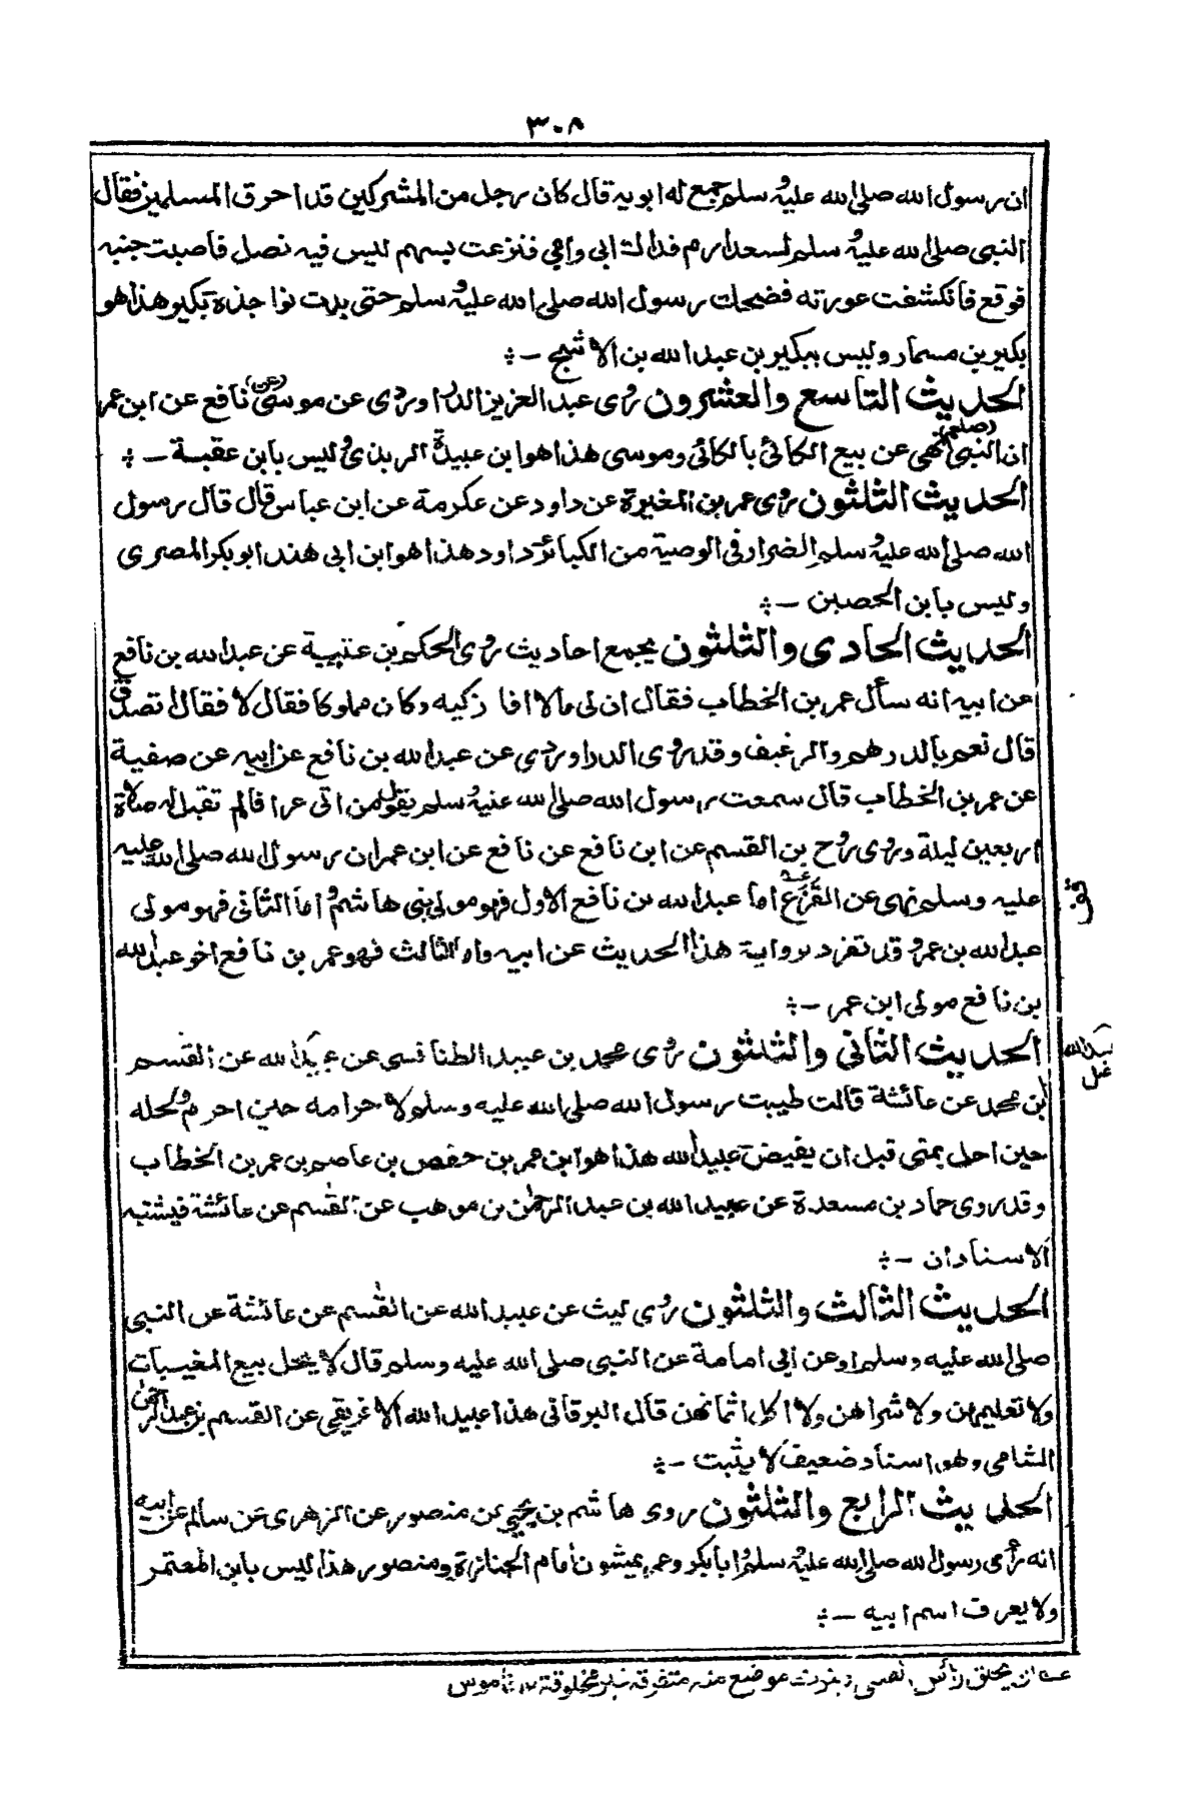 ٣٠٨
ان رسول الله صلى الله عليه وسلم جمع له ابويه قال كان رجل من المشركين قد احرق المسلمين فقال
النبى صلى الله عليه وسلم لسعد ارم فداك ابى وامى فنزعت بسهم ليس فيه نصل فاصبت جنبه
فوقع فانكشفت عورته فضحك رسول الله صلى الله عليه وسلم حتى بدت نواجذه بكير هذا هو
بكير بن مسمار وليس ببكير بن عبد الله بن الاشج -
الحديث التاسع والعشرون روى عبد العزيز الدراوردى عن موسى (عن) نافع عن ابن عمر
ان النبى (صلعم) نهى عن بيع الكالئ بالكالئ وموسى هذا هو ابن عبيدة الربذى وليس بابن عقبة -
الحديث الثلثون روى عمر بن المغيرة عن داود عن عكرمة عن ابن عباس قال قال رسول
الله صلى الله عليه وسلم الضرار فى الوصية من الكبائر داود هذا هو ابن ابى هند ابو بكر المصرى
وليس بابن الحصين -
الحديث الحادى والثلثون يجمع احاديث روى الحكم بن عتيبة عن عبد الله بن نافع
عن ابيه انه سأل عمر بن الخطاب فقال ان لى مالا افا زكيه وكان مملوكا فقال لا فقال اتصدق
قال نعم بالدرهم والرغيف وقد روى الدراوردى عن عبد الله بن نافع عن ابيه عن صفية
عن عمر بن الخطاب قال سمعت رسول الله صلى الله عليه وسلم يقول من اتى عرافا لم تقبل له صلاة
اربعين ليلة وروى روح بن القسم عن ابن نافع عن نافع عن ابن عمر ان رسول الله صلى الله عليه
عليه وسلم نهى عن القزع اما عبد الله بن نافع الاول فهو مولى بنى هاشم واما الثانى فهو مولى
عبد الله بن عمر وقد تفرد برواية هذا الحديث عن ابيه واما الثالث فهو عمر بن نافع اخو عبد الله
بن نافع مولى ابن عمر -
الحديث الثانى والثلثون روى محمد بن عبيد الطنافسى عن عبيد الله عن القسم
ابن محمد عن عائشة قالت طيبت رسول الله صلى الله عليه وسلم لاحرامه حين احرم ولحله
حين احل بمنى قبل ان يفيض عبيد الله هذا هو ابن عمر بن حفص بن عاصم بن عمر بن الخطاب
وقد روى حماد بن مسعدة عن عبيد الله بن عبد الرحمن بن موهب عن القسم عن عائشة فيشتبه
الاسنادان -
الحديث الثالث والثلثون روى ليث عن عبيد الله عن القسم عن عائشة عن النبى
صلى الله عليه وسلم او عن ابى امامة عن النبى صلى الله عليه وسلم قال لا يحل بيع المغنيات
ولا تعليمهن ولا شراهن ولا اكل اثمانهن قال البرقانى هذا عبيد الله الافريقى عن القسم بن عبد الرحمن
الشامى وهو اسناد ضعيف لا يثبت -
الحديث الرابع والثلثون روى هاشم بن يحيى عن منصور عن الزهرى عن سالم عن ابيه
انه رأى رسول الله صلى الله عليه وسلم وابا بكر وعمر يمشون امام الجنازة ومنصور هذا ليس بابن المعتمر
ولا يعرف اسم ابيه -
ان يحلق رأس الصبى ويترك موضع منه متفرقة غير مخلوقة ١٢ قاموس